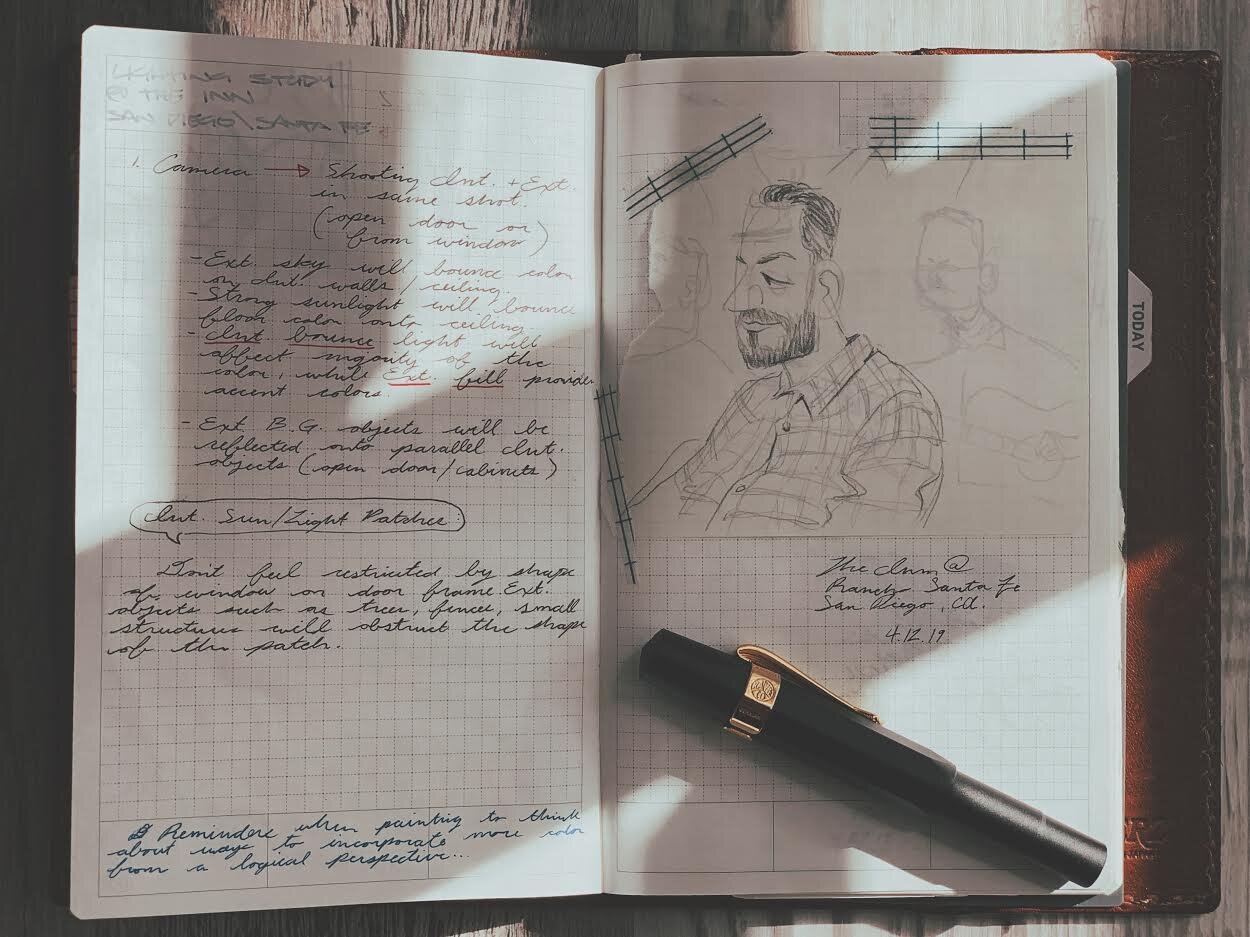 LIGHTING STUDY
@ THE INN
SAN DIEGO\SANTA FE
1. Camera → Shooting Int. + Ext.
in same shot.
(open door or
from window)
- Ext. sky will bounce color
on Int. walls/ceiling.
- Strong sunlight will bounce
floor color onto ceiling.
- Int bounce light will
affect majority of the
color, while Ext. fill provides
accent colors.
- Ext B.G. objects will be
reflected onto parallel Int.
objects (open door/cabinets)
Int. Sun/Light Patches
Don't feel restricted by shape
of window or door frame. Ext.
objects such as trees, fences, small
structures will obstruct the shape
of the patch.
Reminders when painting to think
about ways to incorporate more color
from a logical perspective...
TODAY
The Inn @
Ranch Santa Fe
San Diego, CA.
4.12.19